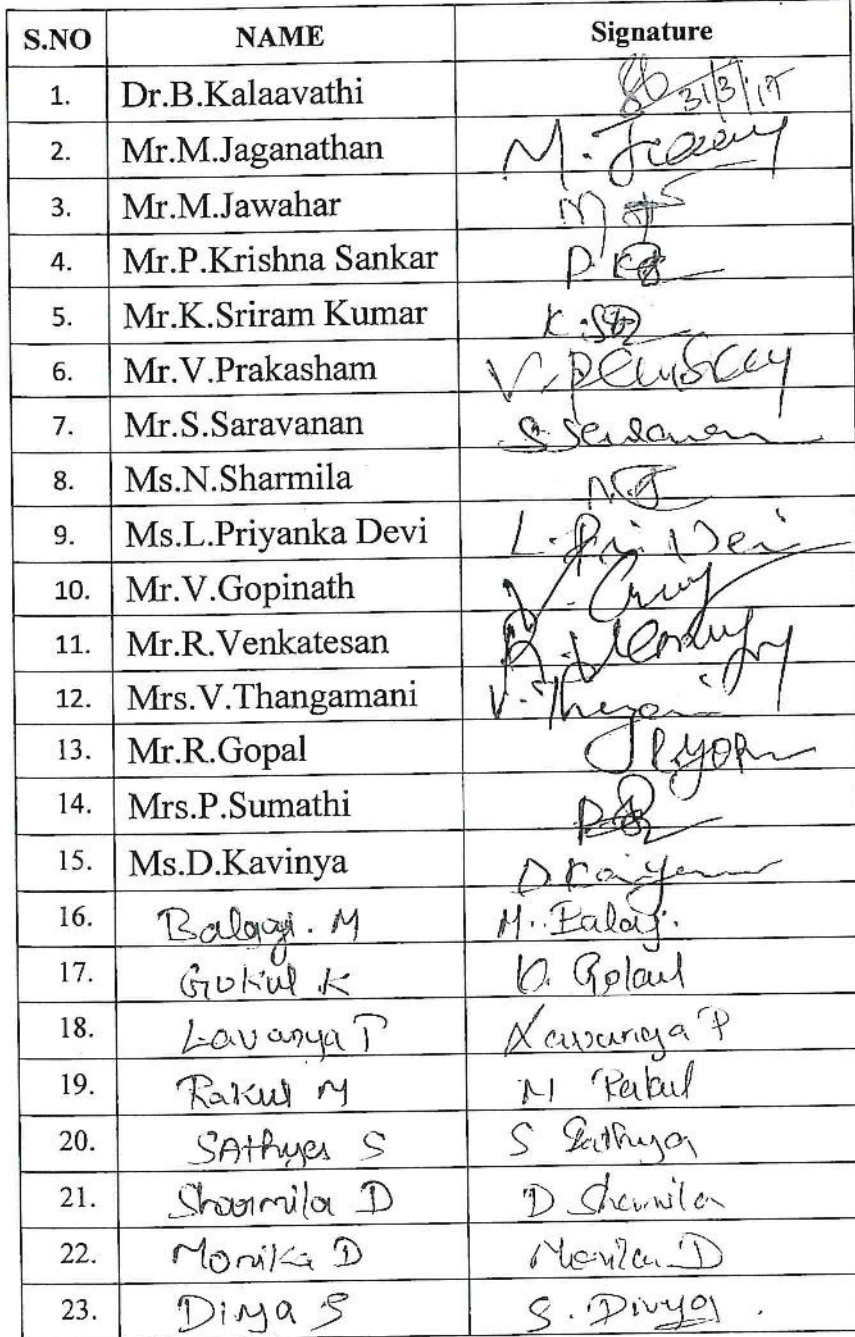 S.NO NAME Signature
1. Dr.B.Kalaavathi 31/3/17
2. Mr.M.Jaganathan M.
3. Mr.M.Jawahar M
4. Mr.P.Krishna Sankar P.
5. Mr.K.Sriram Kumar K.
6. Mr.V.Prakasham V.
7. Mr.S.Saravanan S
8. Ms.N.Sharmila N.
9. Ms.L.Priyanka Devi L. Pri Devi
10. Mr.V.Gopinath V.
11. Mr.R.Venkatesan R.
12. Mrs.V.Thangamani V.
13. Mr.R.Gopal
14. Mrs.P.Sumathi P.
15. Ms.D.Kavinya D.
16. Balaji. M M. Balaji.
17. Gokul K K. Gokul
18. Lavanya P Lavanya P
19. Rakul M M Rakul
20. SAthya S S Sathya
21. Sharmila D D Sharmila
22. Monika D Monika D
23. Divya S S. Divya .